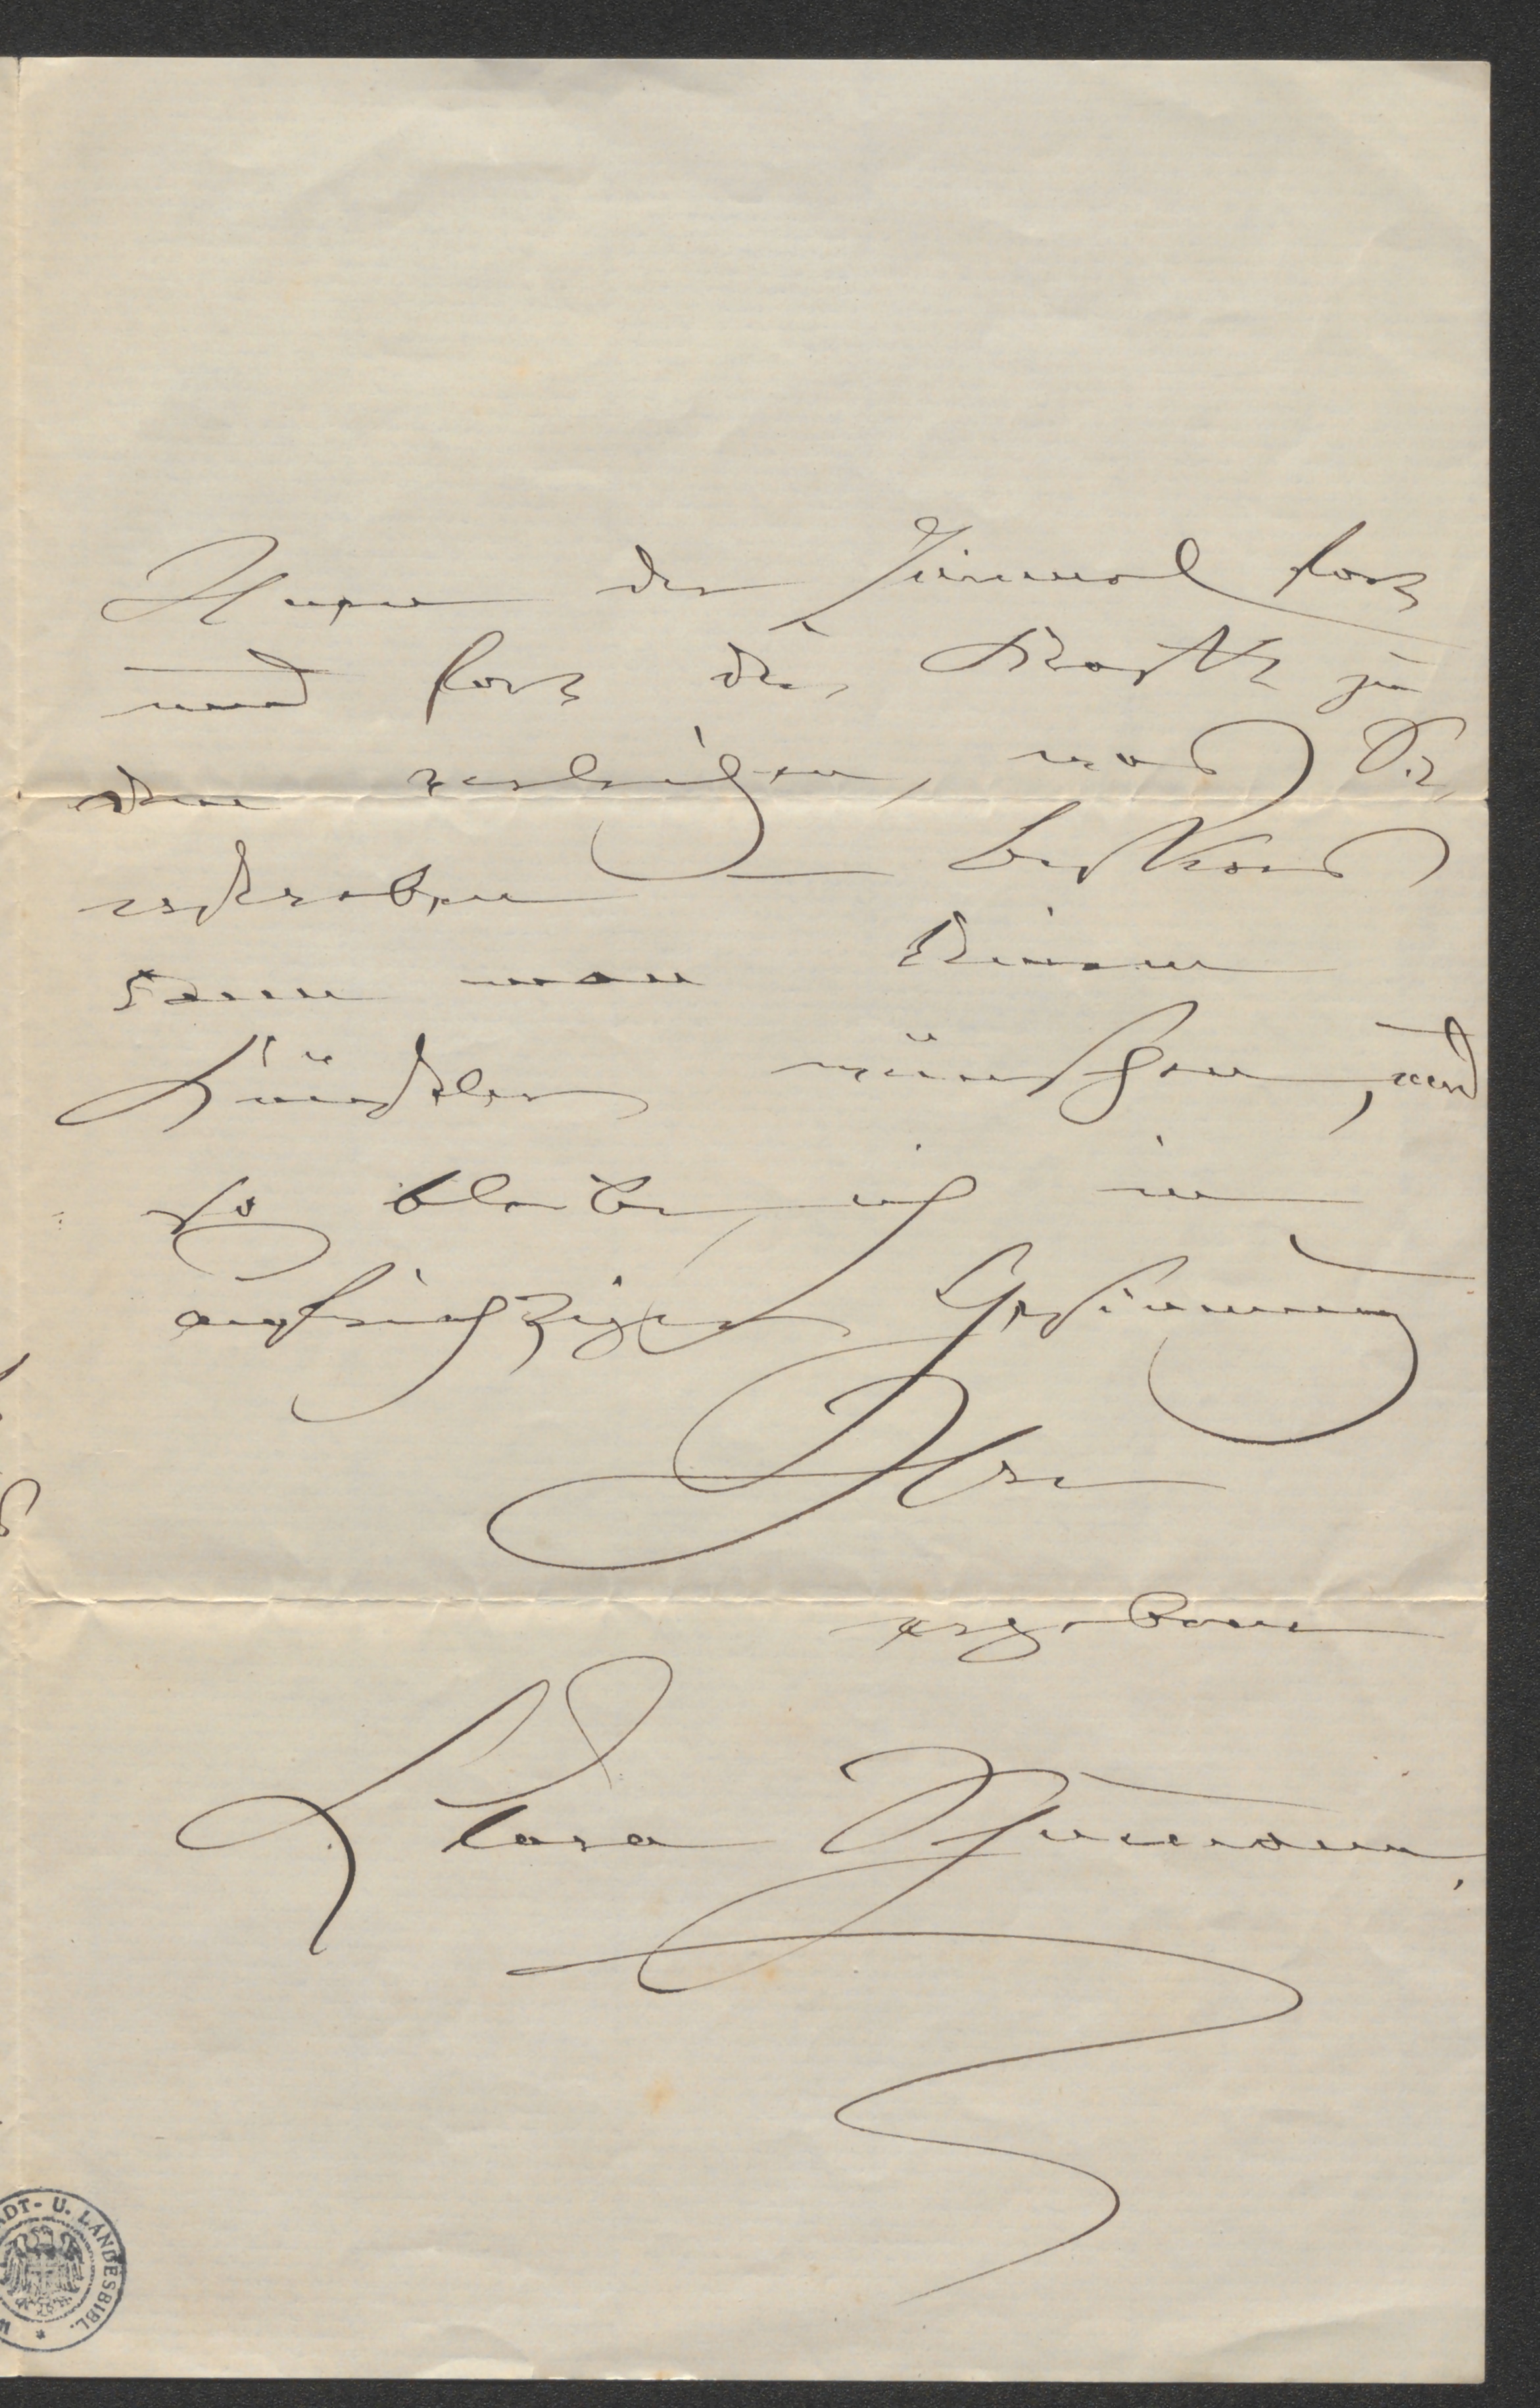 Ihnen der Himmel fort
und fort die Kraft zu
dem verleihen, was Sie
erstreben Besseres
kann man keinem
Künstler wünschen, und
so bleibe ich in
aufrichtiger Gesinnung
Ihre
ergebene
Clara Schumann.
ADT- U. LANDESBIBL.